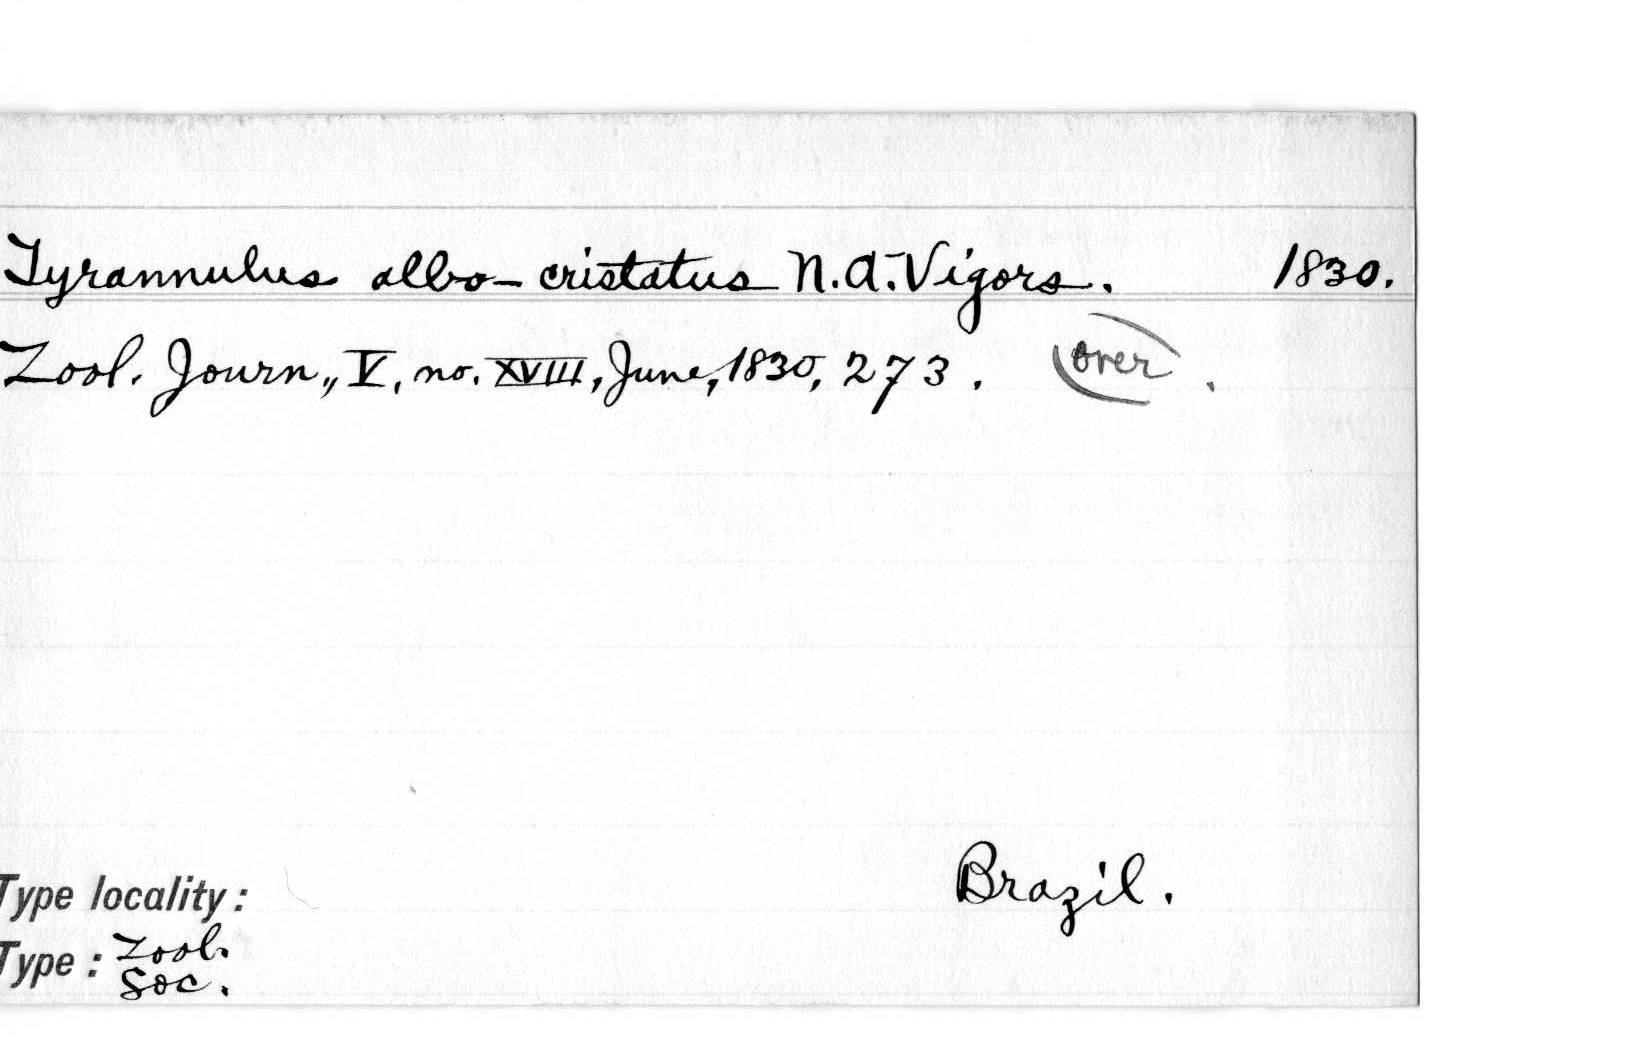 Tyrannulus albo-cristatus N.A. Vigors. 1830.
Zool. Journ., V, no. XVIII, June, 1830, 273. (over).
Brazil.
Type locality:
Type: Zool.
Soc.